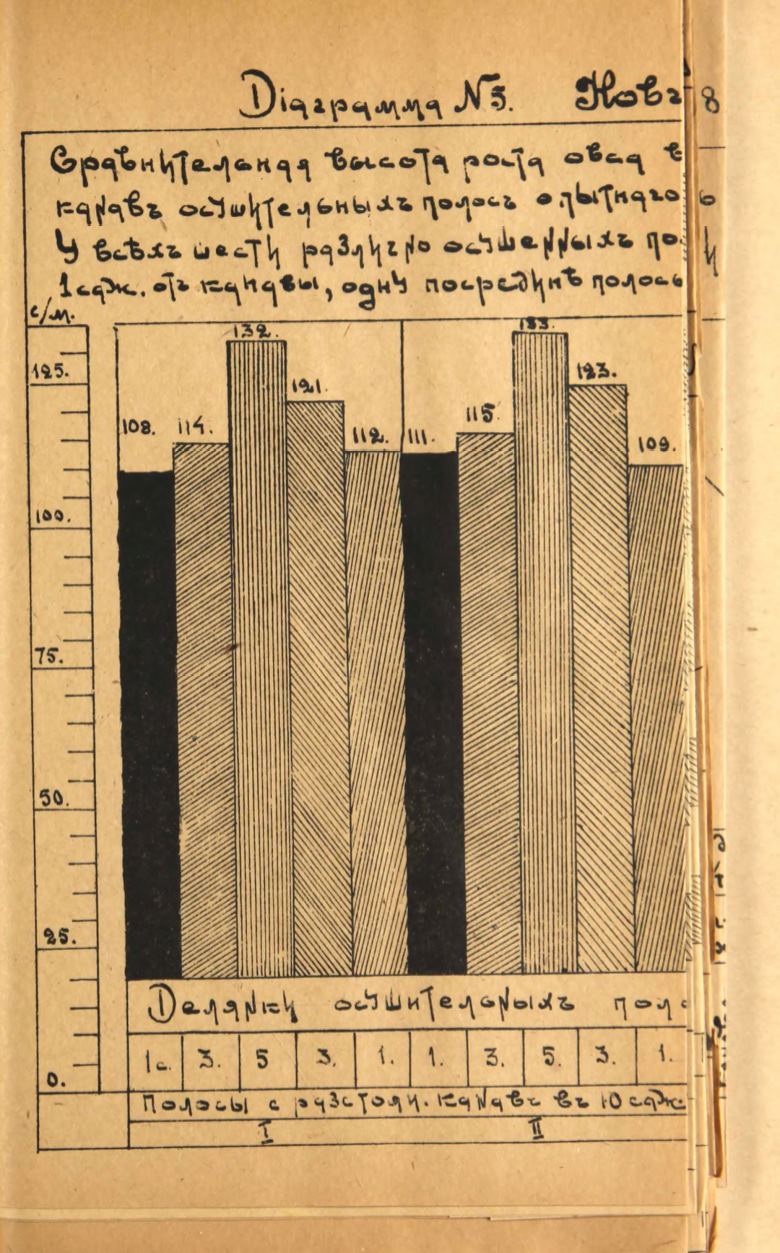 Діаграмма №5. Новг
Сравнительная высота роста овса в
канавъ осушительныхъ полосъ опытнаго
У всѣхъ шести различно осушенныхъ по
1саж. отъ канавы, одну посрединѣ полосы
с/м.
132. 133.
125. 121. 123.
108. 114. 112. 111. 115. 109.
100.
75.
50.
25.
Делянки осушительныхъ поло
1с. 3. 5 3. 1. 1. 3. 5. 3. 1.
0.
Полосы с разстоян. канавъ въ 10 саж
I II
8